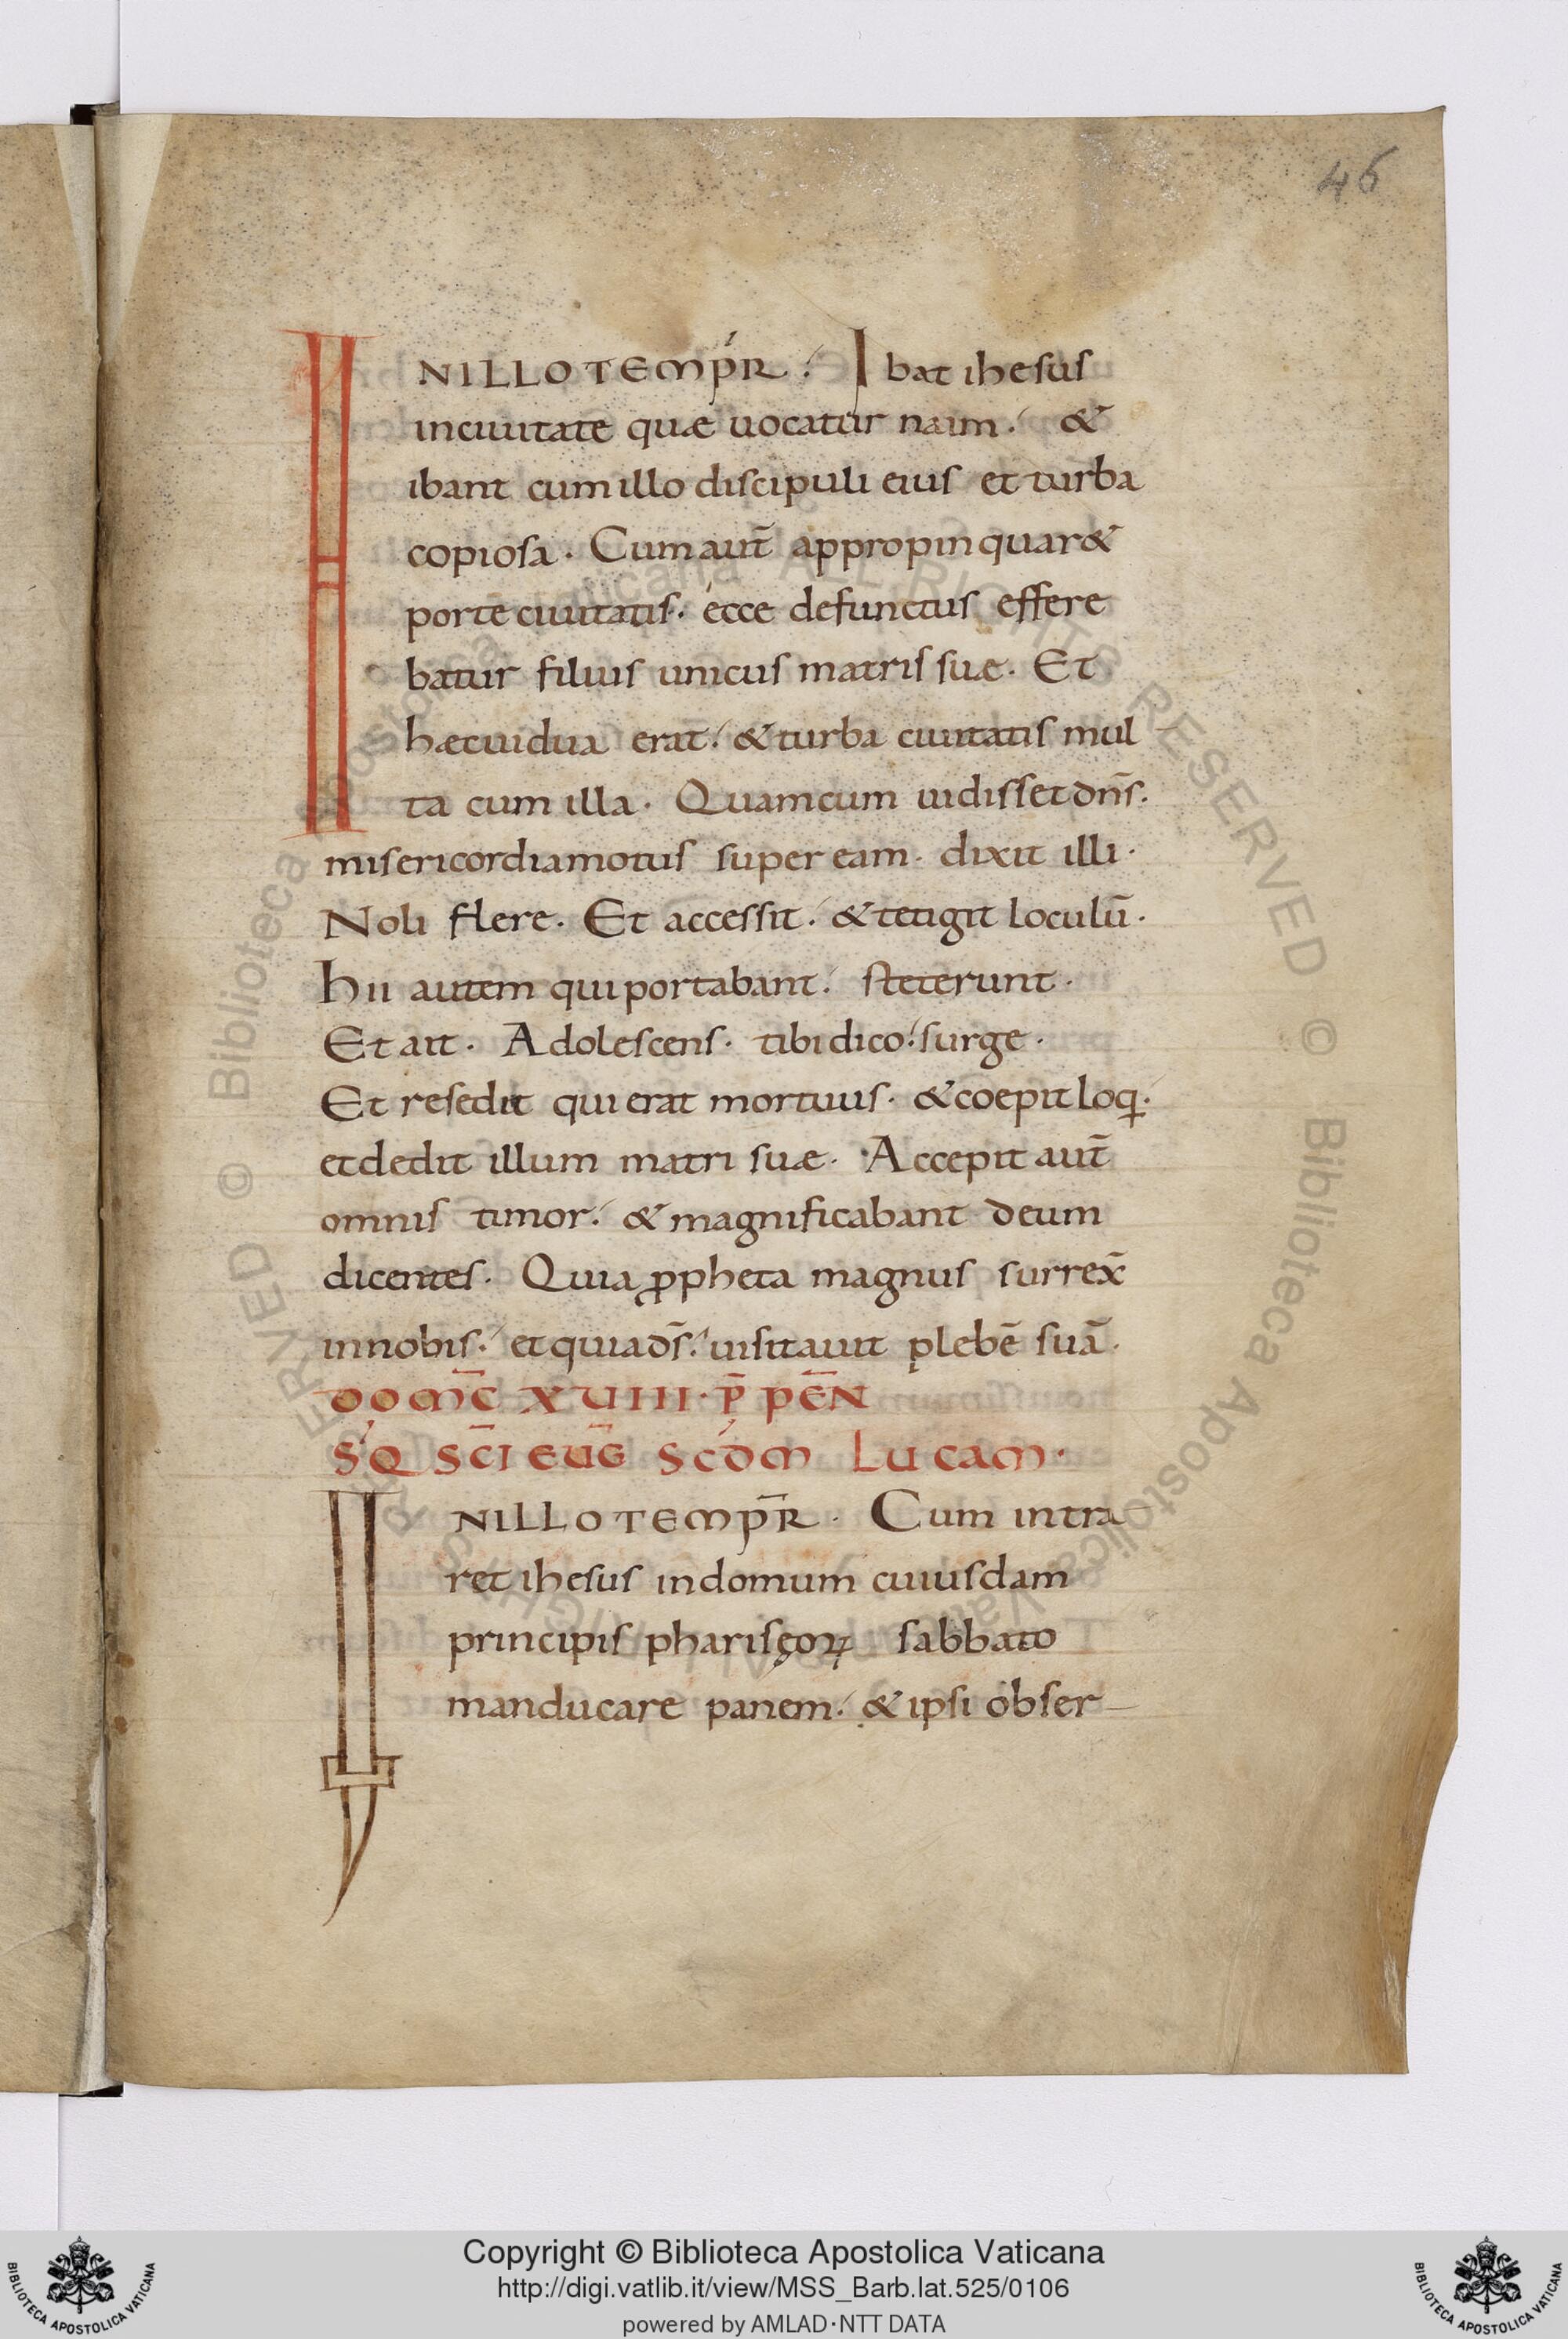 46
INILLOTEMPR̄. Ibat ihesus
inciuitate quae uocatur naim. &
ibant cum illo discipuli eius et turba
copiosa. Cum aut̄ appropinquar&
porte ciuitatis. ecce defunctus effere
batur filius unicus matris suae. Et
haecuidua erat. & turba ciuitatis mul
ta cum illa. Quamcum uidisset dn̄s.
misericordiamotus super eam. dixit illi.
Noli flere. Et accessit. & tetigit loculū.
Hii autem qui portabant. steterunt.
Et ait. Adolescens. tibi dico. surge.
Et resedit qui erat mortuus. & coepit loq.
et dedit illum matri suae. Accepit aut̄
omnis timor. & magnificabant deum
dicentes. Quia ꝓpheta magnus surrex̄
innobis. et quia ds̄. uisitauit plebē suā.
DOMC̄ XVIII. P̄ PEN̄
SQ SC̄I EUḠ SCDM LUCAM.
INILLOTEMPR̄. Cum intra
ret ihesus indomum cuiusdam
principis pharisęoꝝ sabbato
manducare panem. & ipsi obser
© Biblioteca Apostolica Vaticana ALL RIGHTS RESERVED © Biblioteca Apostolica Vaticana ALL RIGHTS RESERVED
Copyright © Biblioteca Apostolica Vaticana
http://digi.vatlib.it/view/MSS_Barb.lat.525/0106
powered by AMLAD·NTT DATA
BIBLIOTECA APOSTOLICA VATICANA
BIBLIOTECA APOSTOLICA VATICANA